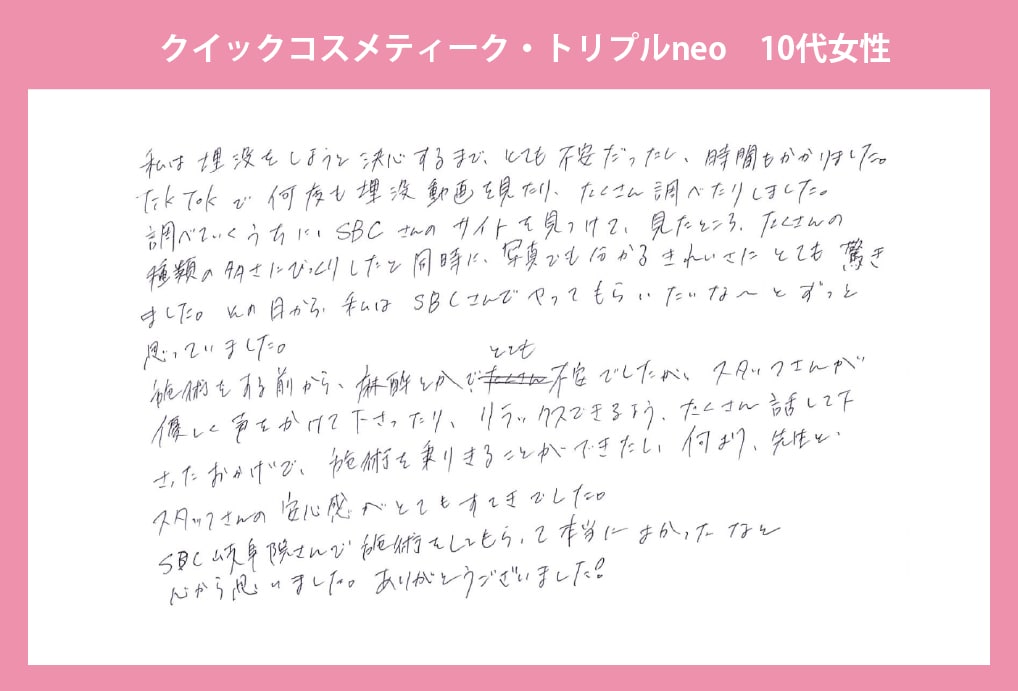 クイックコスメティーク・トリプルneo　10代女性
私は埋没をしようと決心するまで、とても不安だったし、時間もかかりました。
TikTokで何度も埋没動画を見たり、たくさん調べたりしました。
調べていくうちに、SBCさんのサイトを見つけて、見たところ、たくさんの
種類の多さにびっくりしたと同時に、写真でも分かるきれいさにとても驚き
ました。その日から、私はSBCさんでやってもらいたいな〜とずっと
思っていました。
施術をする前から、麻酔とかでとても不安でしたが、スタッフさんが
優しく声をかけて下さったり、リラックスできるよう、たくさん話して下
さったおかげで、施術を乗りきることができたし、何より、先生と、
スタッフさんの安心感がとてもすてきでした。
SBC岐阜院さんで施術をしてもらって本当によかったなと
心から思いました。ありがとうございました!